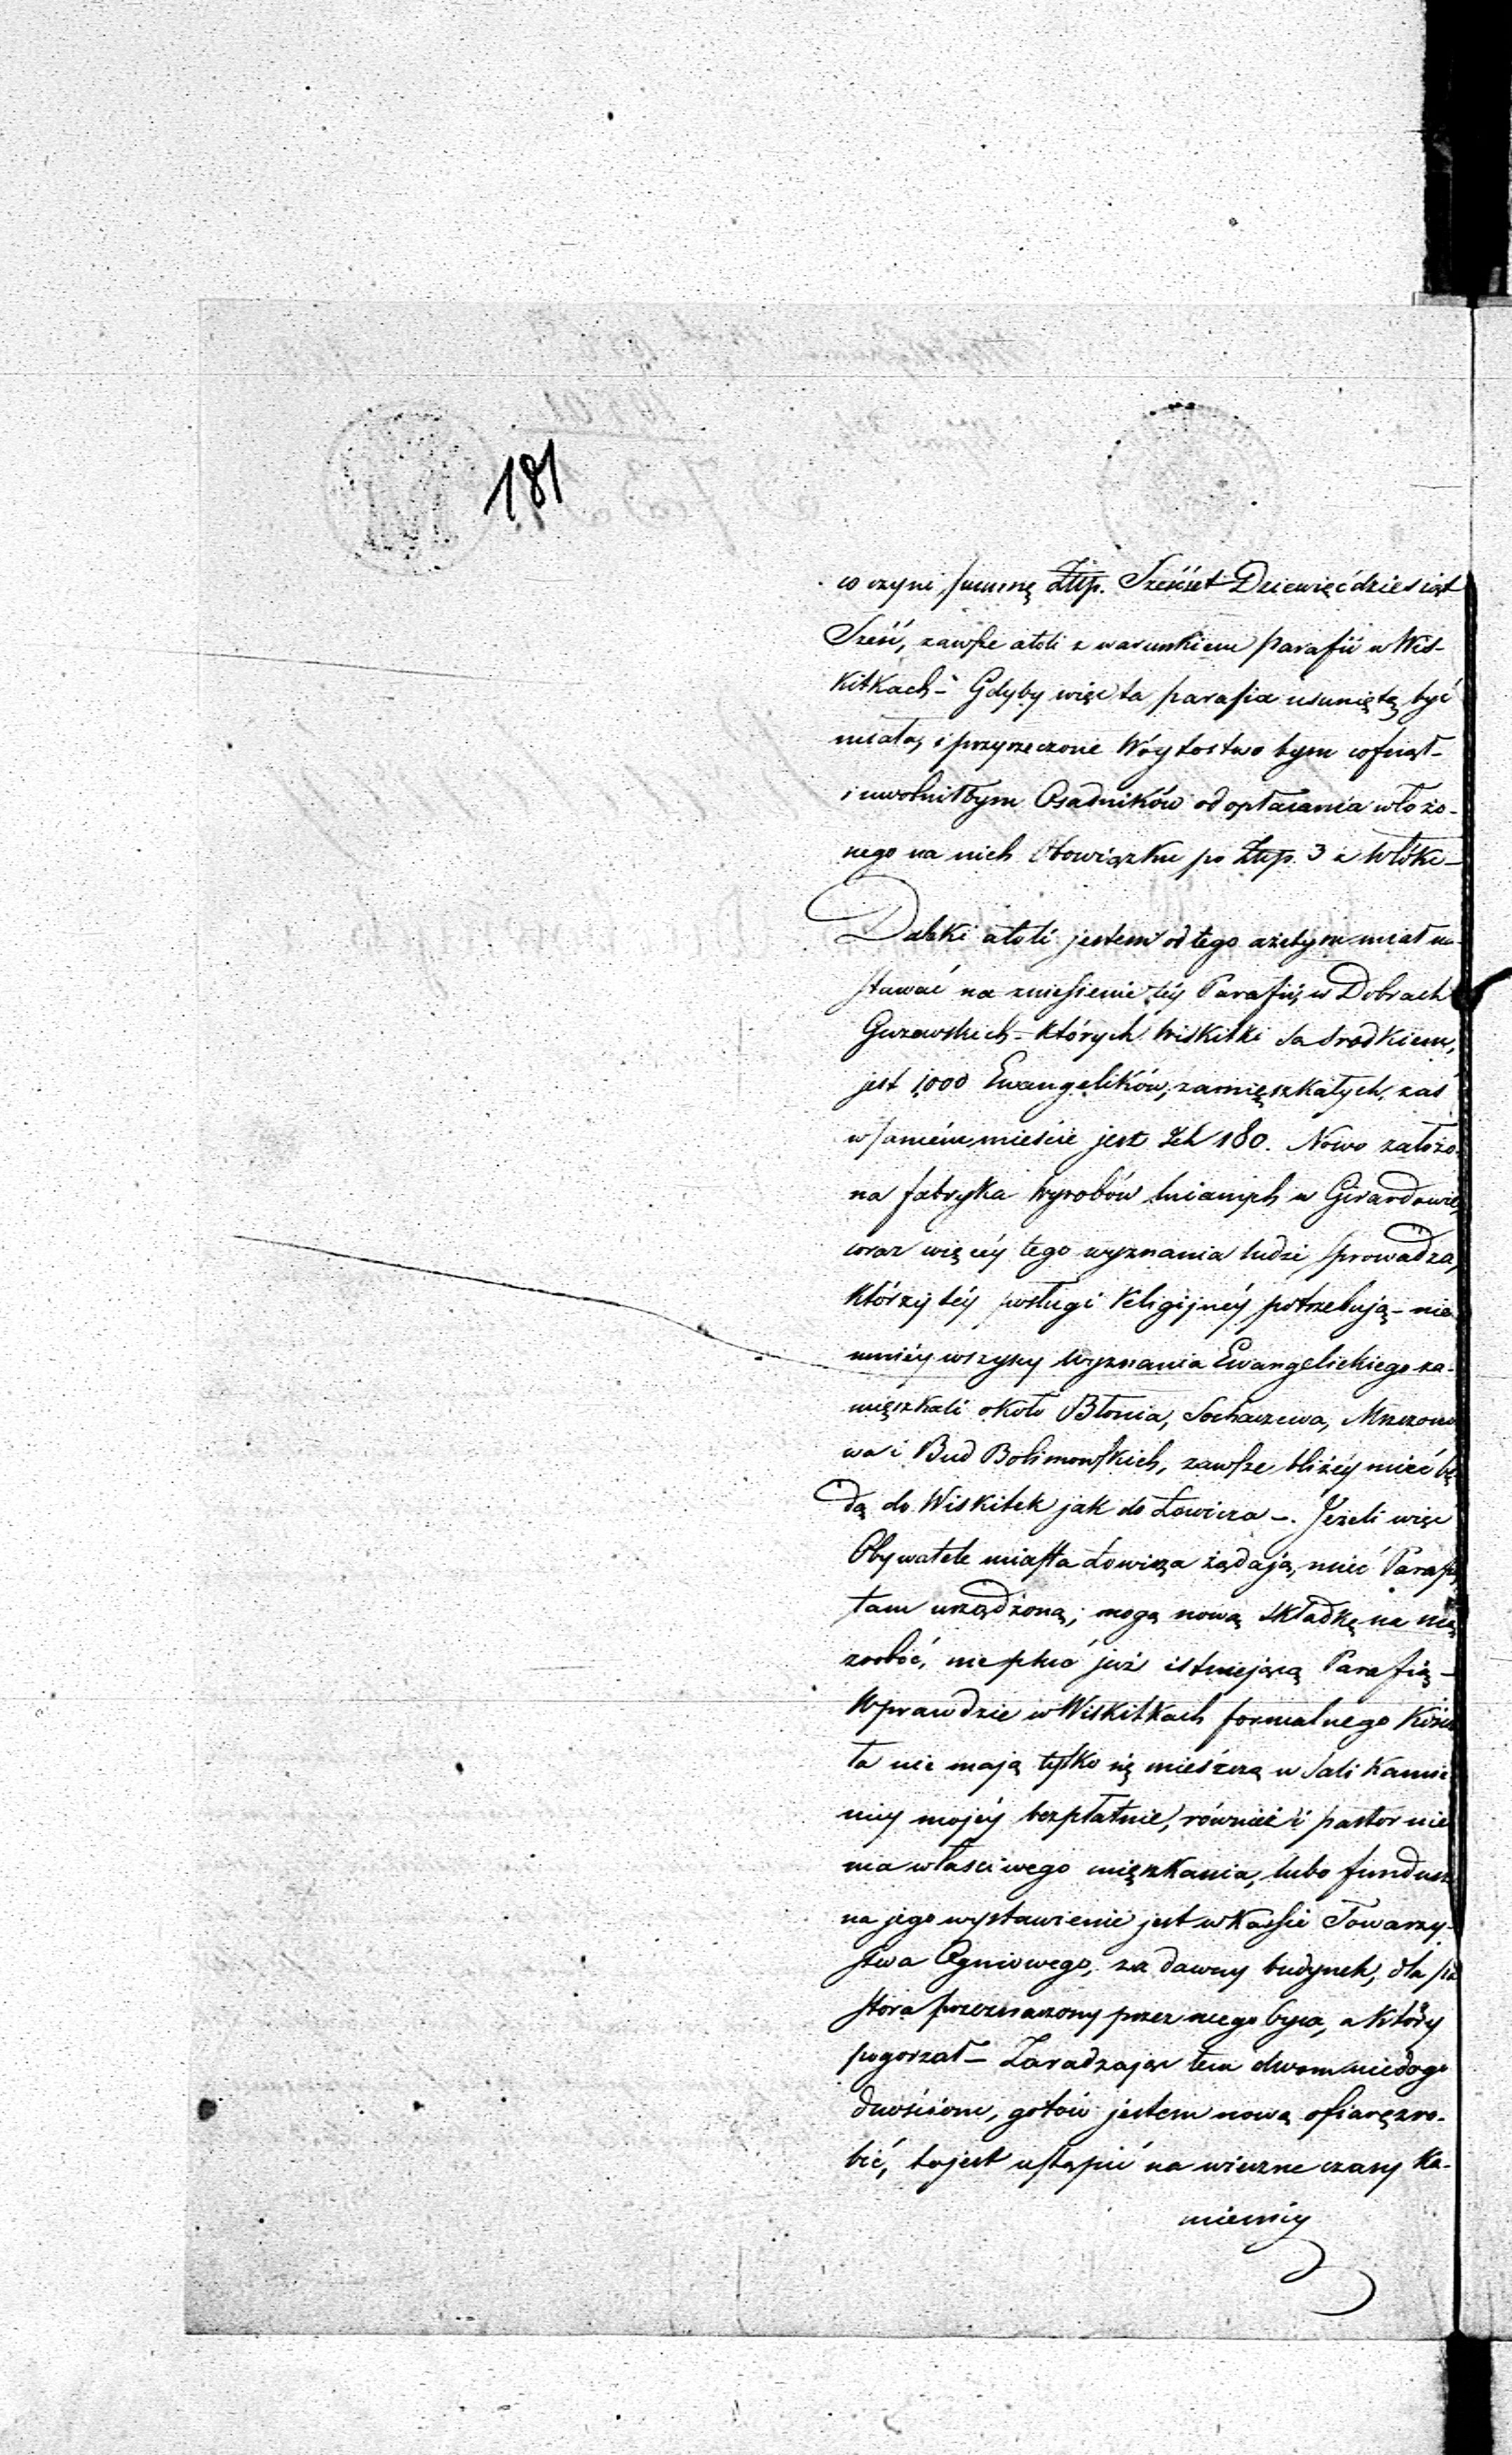 181
co czyni summę Złłp. Sześćset Dziewięćdziesiąt
Sześć, zawsze atoli z warunkiem parafii w Wis-
kitkach - Gdyby więc ta parafia usuniętą być
miała, i przyrzeczone Wóytostwo bym cofnął -
i uwolniłbym Osadników od opłacania włożo-
nego na nich Obowiązku po Złłp. 3 z Włóki -
Daleki atoli jestem od tego ażebym miał na-
stawać na zniesienie téy Parafii, w Dobrach
Guzowskich - których Wiskitki są środkiem,
jest 1,000 Ewangelików, zamięszkałych, zaś
w samém mieście jest Ich 180. Nowo założo-
na fabryka Wyrobów lnianych w Girardowie,
coraz więcéy tego wyznania ludzi sprowadza,
którzy téy posługi Religijnéy potrzebują - nie
mniéy wszyscy Wyznania Ewangelickiego za-
mięszkali około Błonia, Sochaczewa, Mszczono
wa i Bud Bolimowskich, zawsze bliżéy mieć bę
dą do Wiskitek jak do Łowicza -. Jeżeli więc
Obywatele miasta Łowicza żądają, mieć Parafią
tam urządzoną; mogą nową składkę na nią
zrobić, nie psuć już istniejącą Parafią -
Wprawdzie w Wiskitkach formalnego Kościo
ła nie mają tylko się mieszczą w Sali Kamie
nicy mojéy bezpłatnie, również i pastor nie
ma właściwego mięszkania, lubo fundusz
na jego wystawienie jest w Kassie Towarzy-
stwa Ogniowego, za dawny budynek, dla pa
stora przeznaczony przez niego był, a który
pogorzał - Zaradzając tem dwom niedogo
dnościom, gotów jestem nową ofiarę zro-
bić, to jest ustąpić na wieczne czasy Ka-
mienicy